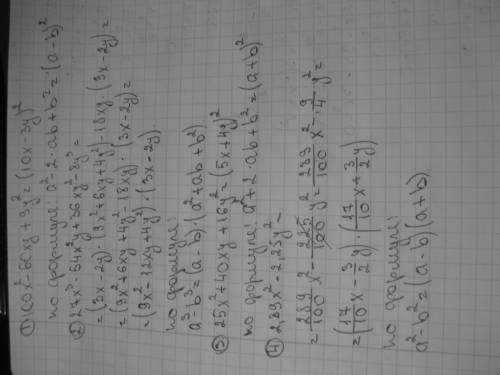 ① 100x²-60xy+9y²=(10x-3y)²
по формуле: a²-2·ab+b²=(a-b)²
② 27x³-54x²y+36xy²-8y³=
=(3x-2y)·(9x²+6xy+4y²)-18xy·(3x-2y)=
=(9x²+6xy+4y²-18xy)·(3x-2y)=
=(9x²-12xy+4y²)·(3x-2y).
по формуле:
a³-b³=(a-b)·(a²+ab+b²)
③ 25x²+40xy+16y²=(5x+4y)²
по формуле: a²+2·ab+b²=(a+b)²
④ 2,89x²-2,25y²=
=289/100x²-225/100y²=289/100x²-9/4y²=
=(17/10x-3/2y)·(17/10x+3/2y)
по формуле:
a²-b²=(a-b)(a+b)